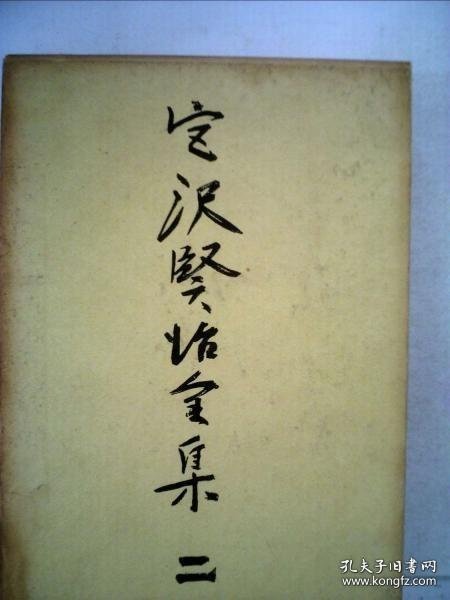 宮沢賢治全集 二
孔夫子旧书网
www.kongfz.com